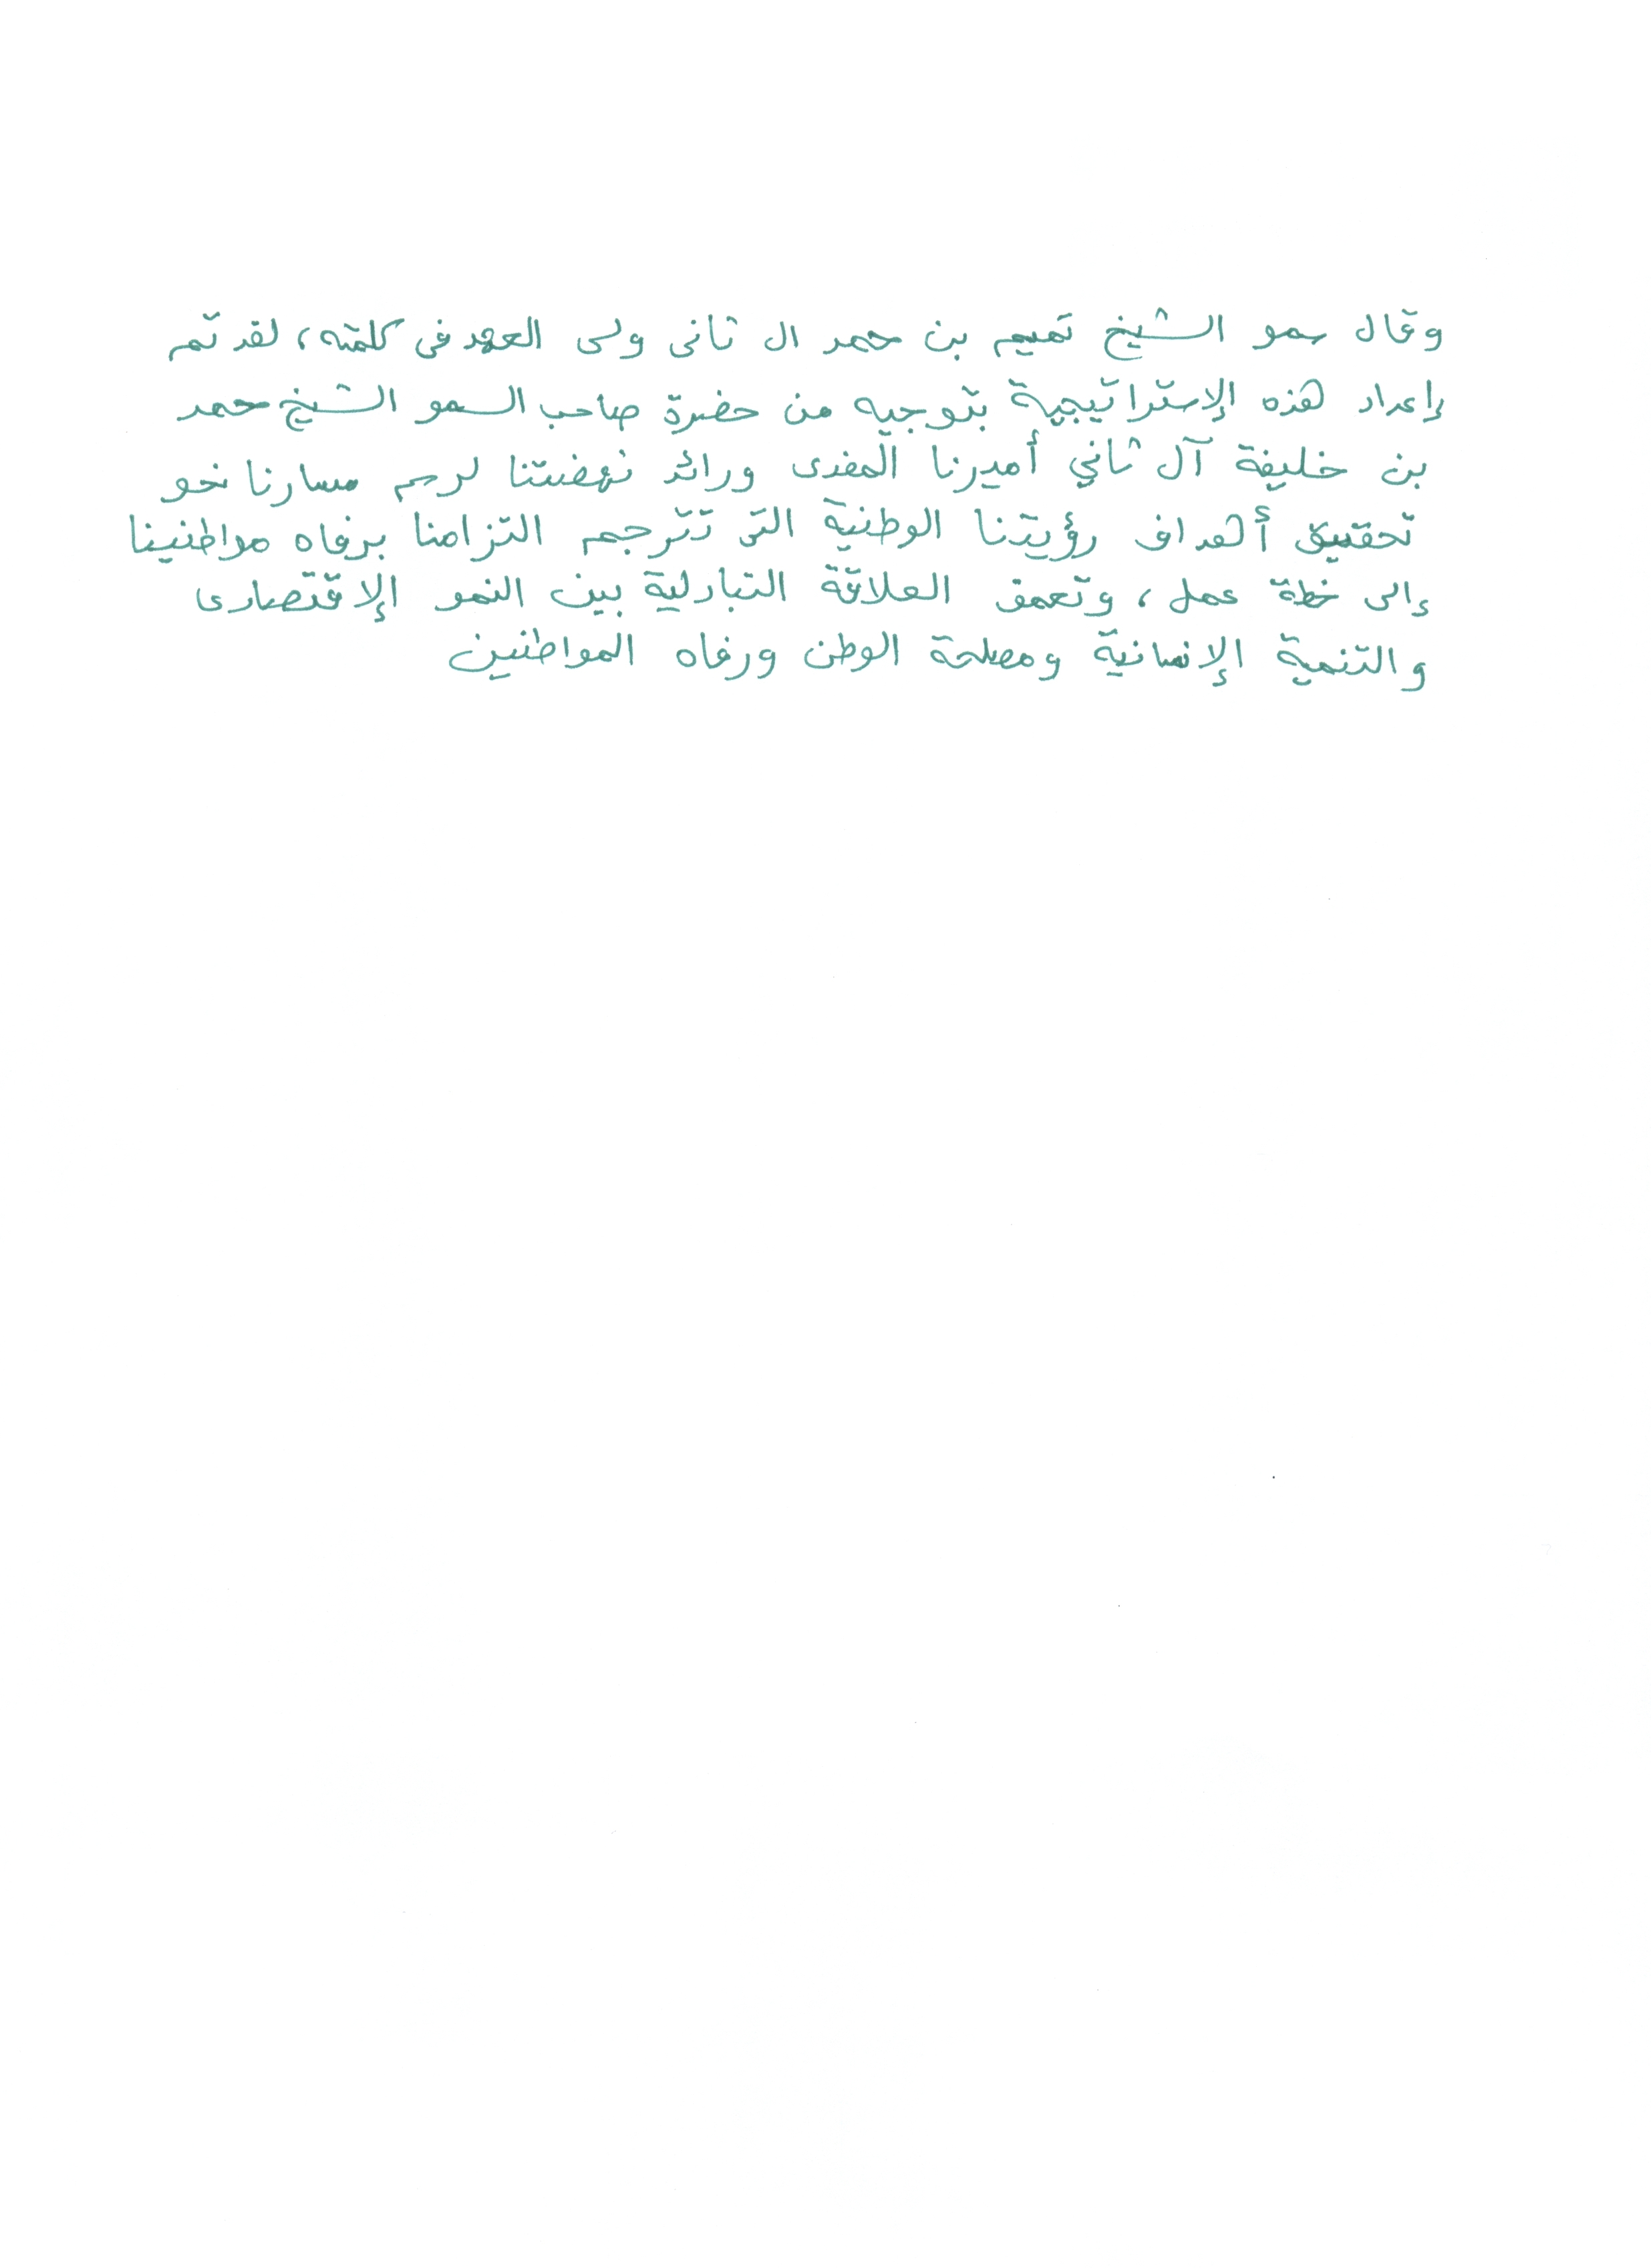 وقال سمو الشيخ تميم بن حمد ال ثانى ولى العهد فى كلمته، لقد تم
إعداد هذه الإستراتيجية بتوجيه من حضرة صاحب السمو الشيخ حمد
بن خليفة آل ثاني أميرنا المفدى ورائد نهضتنا لرسم مسارنا نحو
تحقيق أهداف رؤيتنا الوطنية التى تترجم التزامنا برفاه مواطنينا
إلى خطة عمل، وتعمق العلاقة التبادلية بين النمو الإقتصادى
والتنمية الإنسانية ومصلحة الوطن ورفاه المواطنين